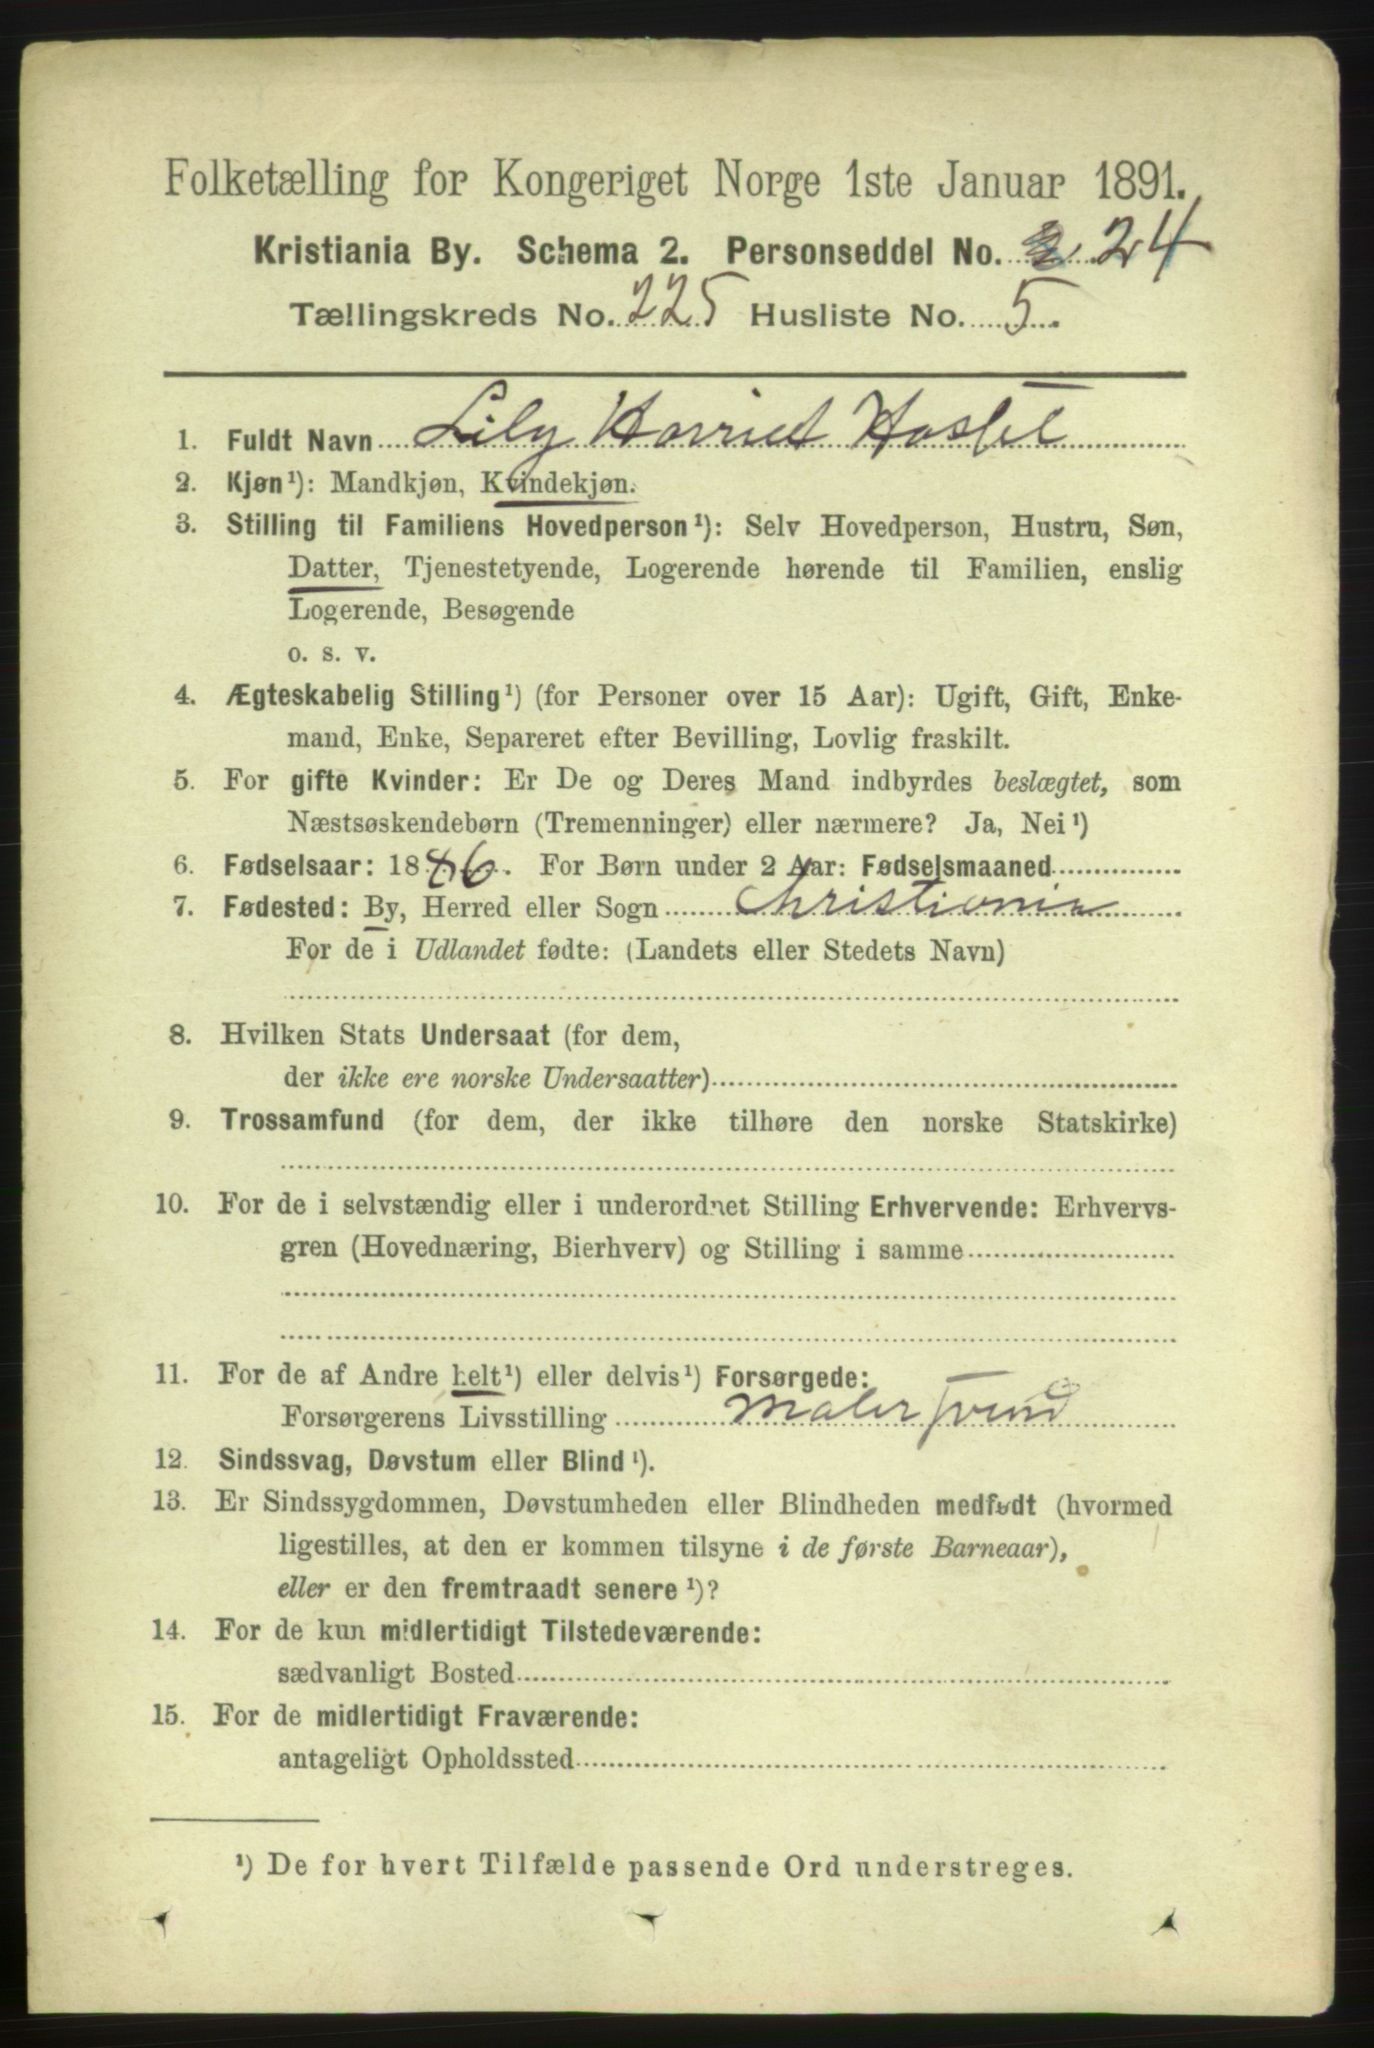 Folketælling for Kongeriget Norge 1ste Januar 1891.
Kristiania By. Schema 2. Personseddel No. 24
Tællingskreds No. 225 Husliste No. 5.
1. Fuldt Navn Lily Harriet Hassel
2. Kjøn¹): Mandkjøn, Kvindekjøn.
3. Stilling til Familiens Hovedperson¹): Selv Hovedperson, Hustru, Søn,
Datter, Tjenestetyende, Logerende hørende til Familien, enslig
Logerende, Besøgende
o. s. v.
4. Ægteskabelig Stilling¹) (for Personer over 15 Aar): Ugift, Gift, Enke-
mand, Enke, Separeret efter Bevilling, Lovlig fraskilt.
5. For gifte Kvinder: Er De og Deres Mand indbyrdes beslægtet, som
Næstsøskendebørn (Tremenninger) eller nærmere? Ja, Nei¹)
6. Fødselsaar: 1886. For Børn under 2 Aar: Fødselsmaaned
7. Fødested: By, Herred eller Sogn Christiania
For de i Udlandet fødte: (Landets eller Stedets Navn)
8. Hvilken Stats Undersaat (for dem,
der ikke ere norske Undersaatter)
9. Trossamfund (for dem, der ikke tilhøre den norske Statskirke)
10. For de i selvstændig eller i underordnet Stilling Erhvervende: Erhvervs-
gren (Hovednæring, Bierhverv) og Stilling i samme
11. For de af Andre helt¹) eller delvis¹) Forsørgede:
Forsørgerens Livsstilling Maler
12. Sindssvag, Døvstum eller Blind¹).
13. Er Sindssygdommen, Døvstumheden eller Blindheden medfødt (hvormed
ligestilles, at den er kommen tilsyne i de første Barneaar),
eller er den fremtraadt senere¹)?
14. For de kun midlertidigt Tilstedeværende:
sædvanligt Bosted
15. For de midlertidigt Fraværende:
antageligt Opholdssted
¹) De for hvert Tilfælde passende Ord understreges.